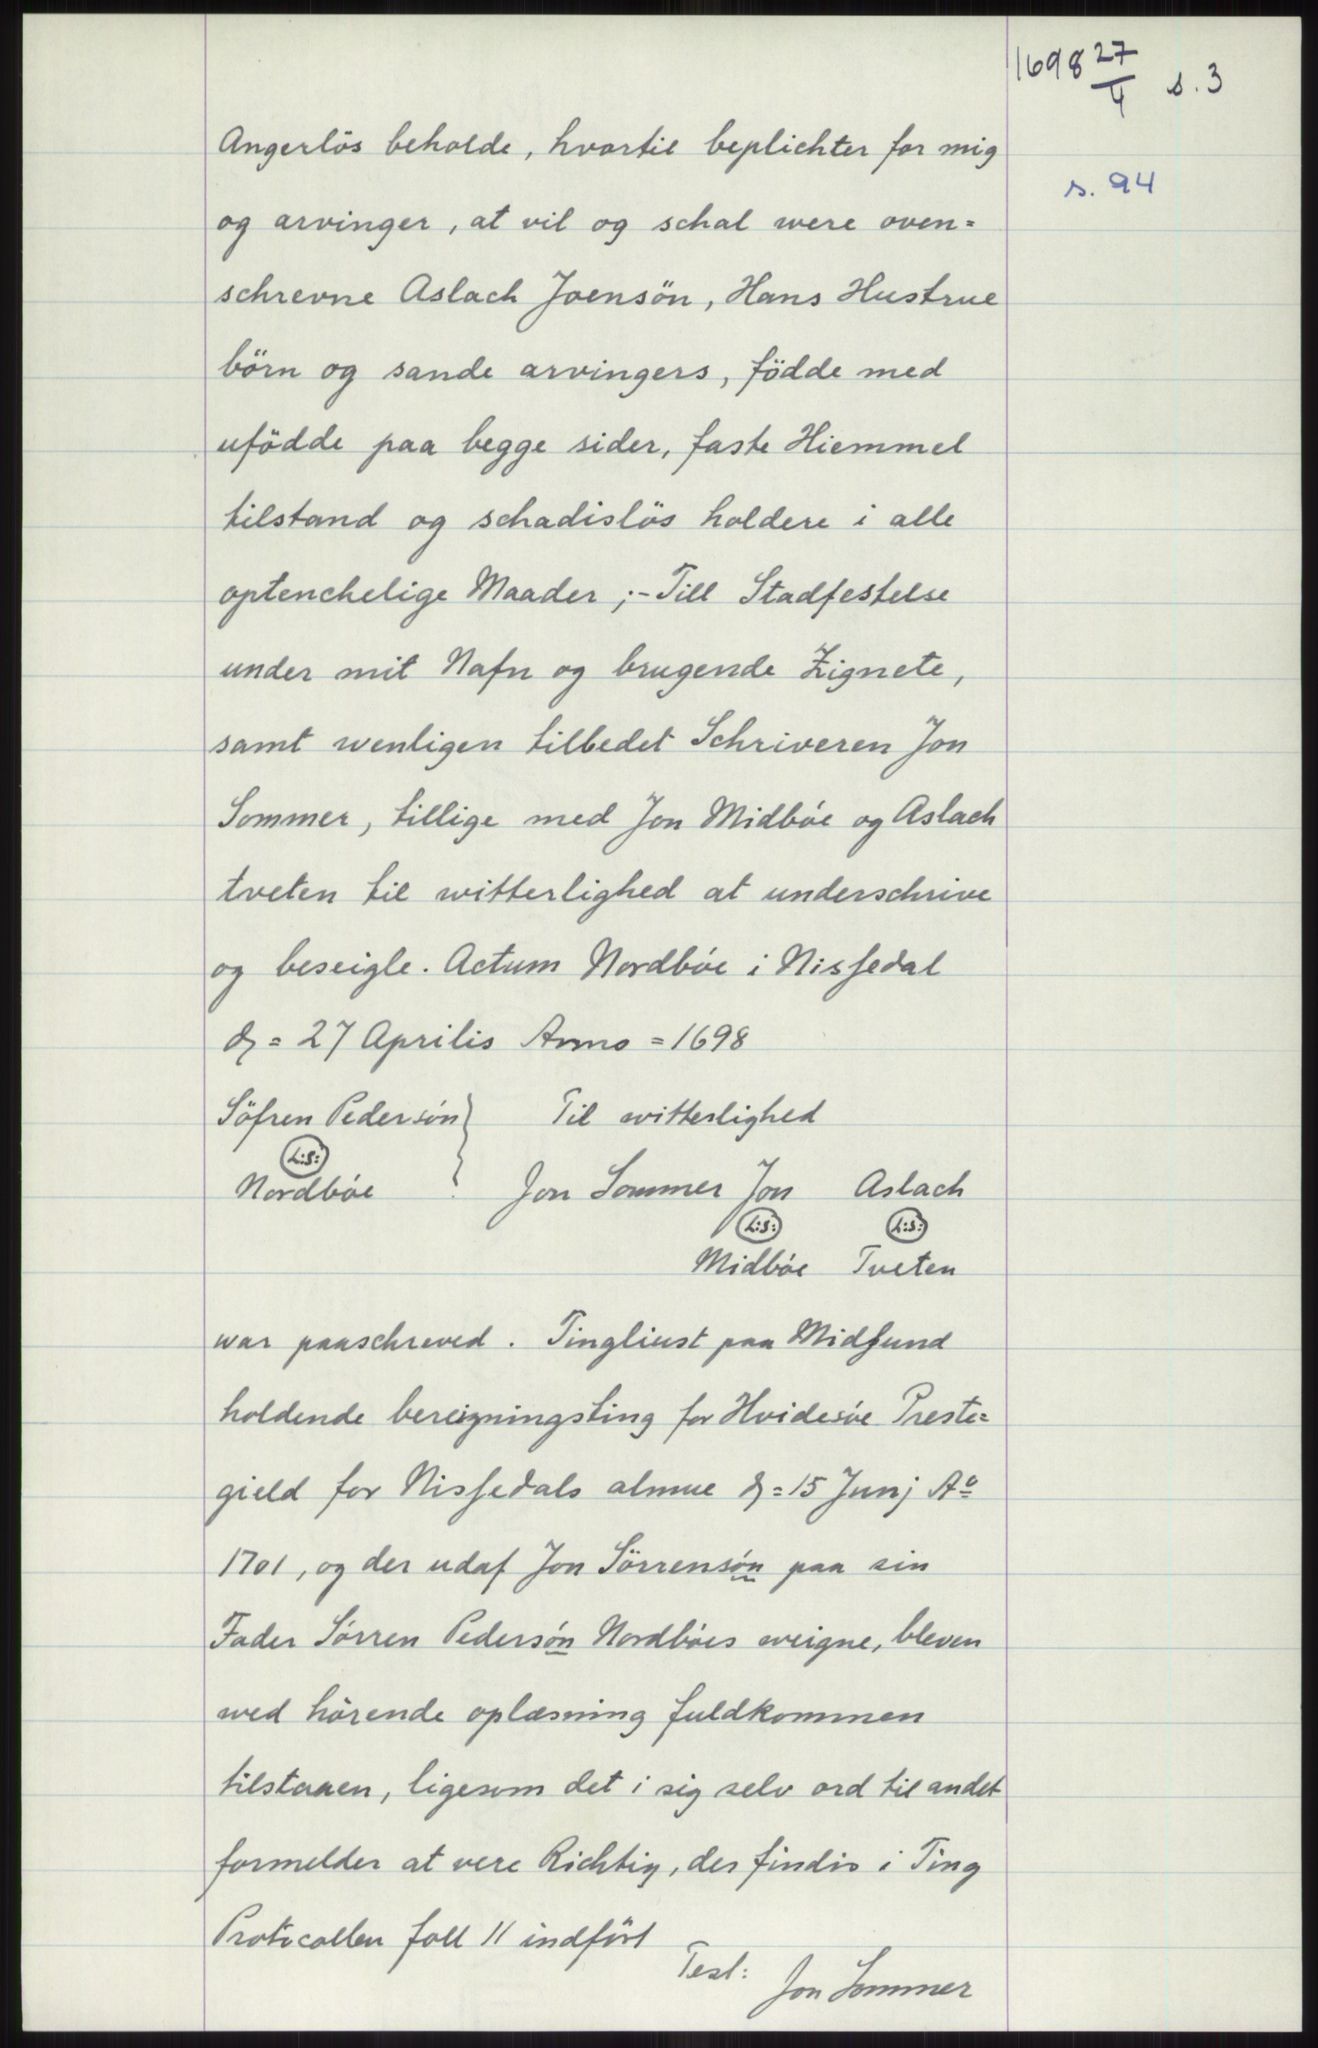 1698 27/4 s. 3
s. 94
Angerlös beholde, hvortil beplichter for mig
og arvinger, at vil og schal were oven=
schrevne Aslach Joensön, Hans Hustrue
börn og sande arvingers, födde med
ufödde paa begge sider, faste Hiemmel
tilstand og schadislös holdere i alle
optenchelige Maader ;- Till Stadfestelse
under mit Nafn og brugende Zignete,
samt wenligen tilbedet Schriveren Jon
Sommer, tillige med Jon Midbóe og Aslach
tveten til witterlighed at underschrive
og beseigle. Actum Nordbóe i Nissedal
d = 27 Aprilis Anno = 1698
Söfren Pedersón } Til witterlighed
L:S:
Nordbóe Jon Sommer Jon Aslach
L:S: L:S:
Midbóe Tveten
war paaschreved. Tingliust paa Midsund
holdende bereigningsting for Hvidesóe Preste=
gield for Nissedals almue d = 15 Junj Aº
1701, og der udaf Jon Sörrensón paa sin
Fader Sórren Pedersón Nordbóes weigne, bleven
wed hórende oplæsning fuldkommen
tilstaaen, ligesom det i sig selv ord til andet
formelder at vere Richtig, der findis i Ting
Protocollen foll 11 indfört
Test: Jon Sommer